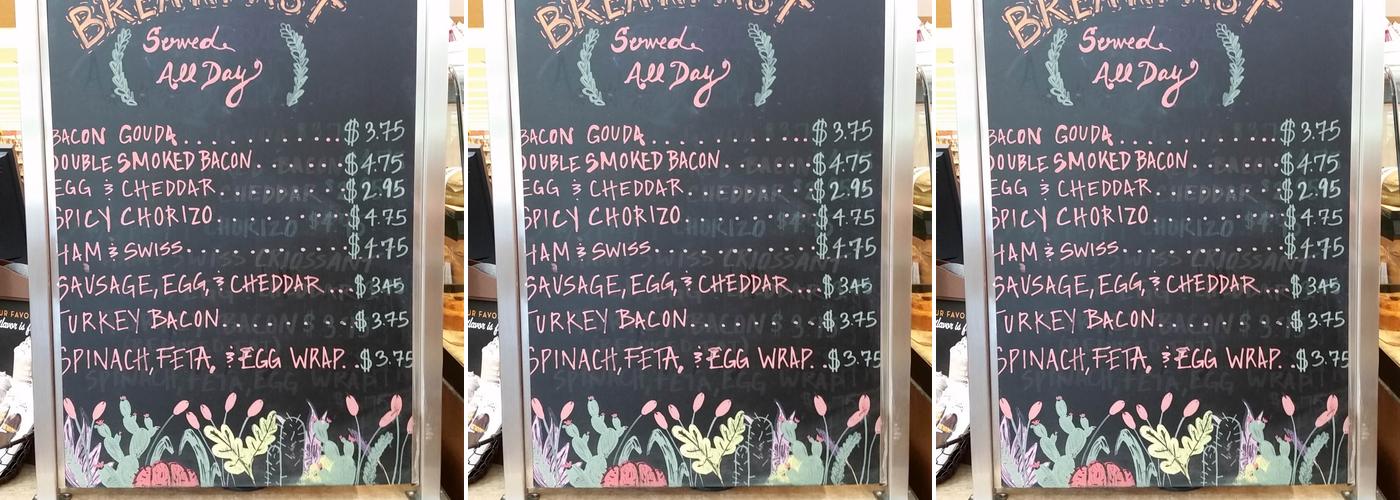 BREAKFAST
Served
All Day
BACON GOUDA............$3.75
DOUBLE SMOKED BACON.......$4.75
EGG & CHEDDAR..........$2.95
SPICY CHORIZO..........$4.75
HAM & SWISS............$4.75
SAUSAGE, EGG, & CHEDDAR...$345
TURKEY BACON.........$3.75
SPINACH, FETA, & EGG WRAP...$3.75
BREAKFAST
Served
All Day
BACON GOUDA............$3.75
DOUBLE SMOKED BACON.......$4.75
EGG & CHEDDAR..........$2.95
SPICY CHORIZO..........$4.75
HAM & SWISS............$4.75
SAUSAGE, EGG, & CHEDDAR...$345
TURKEY BACON.........$3.75
SPINACH, FETA, & EGG WRAP...$3.75
BREAKFAST
Served
All Day
BACON GOUDA............$3.75
DOUBLE SMOKED BACON.......$4.75
EGG & CHEDDAR..........$2.95
SPICY CHORIZO..........$4.75
HAM & SWISS............$4.75
SAUSAGE, EGG, & CHEDDAR...$345
TURKEY BACON.........$3.75
SPINACH, FETA, & EGG WRAP...$3.75